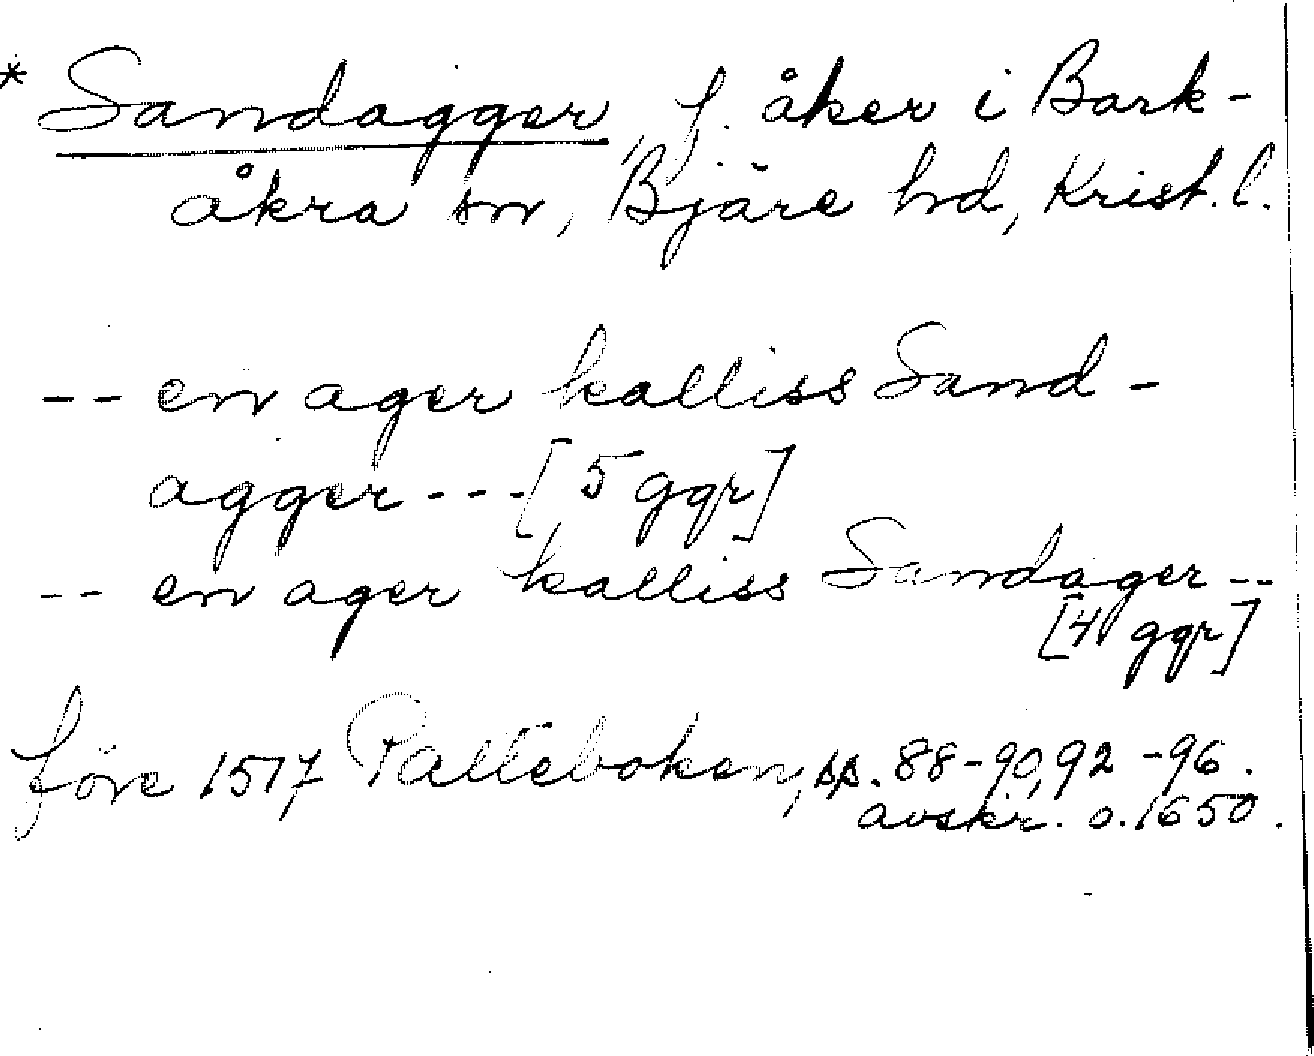 * Sandagger, f. åker i Bark-
åkra sn, Bjäre hd, Krist. l.
-- en ager kalliss Sand-
agger --- [5 ggr]
-- en ager kalliss Sandager --
[4 ggr]
före 1517 Palteboken, ss. 88-90, 92-96.
avskr. o. 1650.